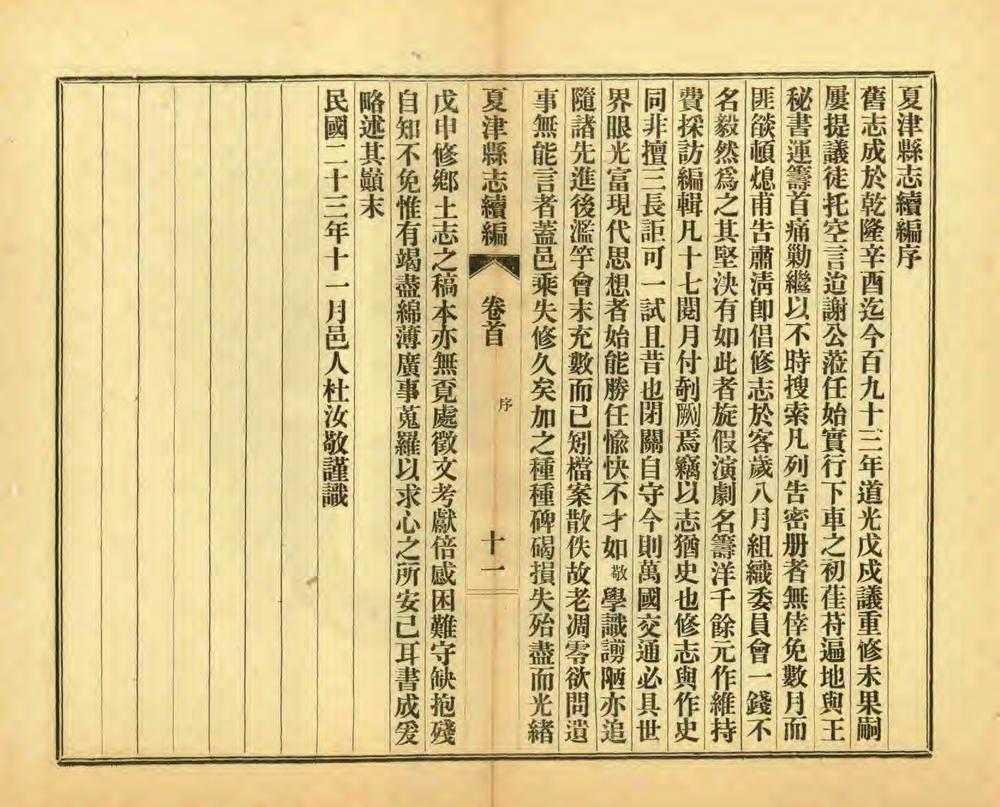 夏津縣志續編序
舊志成於乾隆辛酉迄今百九十三年道光戊戌議重修未果嗣
屢提議徒托空言迨謝公蒞任始實行下車之初萑苻遍地與王
秘書運籌首痛勦繼以不時搜索凡列告密册者無倖免數月而
匪燄頓熄甫告肅淸卽倡修志於客歲八月組織委員會一錢不
名毅然爲之其堅決有如此者旋假演劇名籌洋千餘元作維持
費採訪編輯凡十七閱月付剞劂焉竊以志猶史也修志與作史
同非擅三長詎可一試且昔也閉關自守今則萬國交通必具世
界眼光富現代思想者始能勝任愉快不才如敬學識譾陋亦追
隨諸先進後濫竽會末充數而已矧檔案散佚故老凋零欲問遺
事無能言者蓋邑乘失修久矣加之種種碑碣損失殆盡而光緒
夏津縣志續編 卷首 序 十一
戊申修鄕土志之稿本亦無覓處徵文考獻倍感困難守缺抱殘
自知不免惟有竭盡綿薄廣事蒐羅以求心之所安已耳書成爰
略述其顚末
民國二十三年十一月邑人杜汝敬謹識